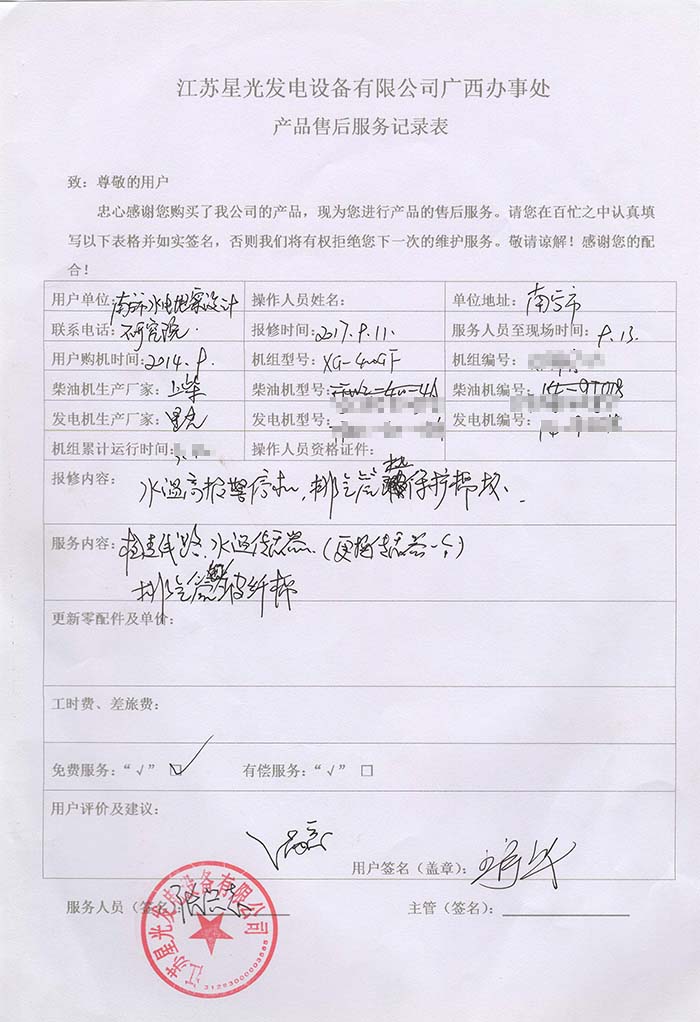 江苏星光发电设备有限公司广西办事处
产品售后服务记录表
致：尊敬的用户
忠心感谢您购买了我公司的产品，现为您进行产品的售后服务。请您在百忙之中认真填
写以下表格并如实签名，否则我们将有权拒绝您下一次的维护服务。敬请谅解！感谢您的配
合！
用户单位：南宁市水电地震设计 操作人员姓名： 单位地址：南宁市
联系电话：研究院. 报修时间：2017.9.11. 服务人员至现场时间：9.13.
用户购机时间：2014.9. 机组型号：XG-400GF 机组编号：
柴油机生产厂家：上柴 柴油机型号： 柴油机编号：
发电机生产厂家：星光 发电机型号： 发电机编号：
机组累计运行时间： 操作人员资格证件：
报修内容：水温高报警停机，排气管 保护棉
服务内容：检查线路、水温传感器.（更换传感器一个）
排气管 纤棉
更新零配件及单价：
工时费、差旅费：
免费服务：“√” ☑ 有偿服务：“√” □
用户评价及建议：
满意
用户签名（盖章）：
服务人员（签名）： 主管（签名）：
江苏星光发电设备有限公司